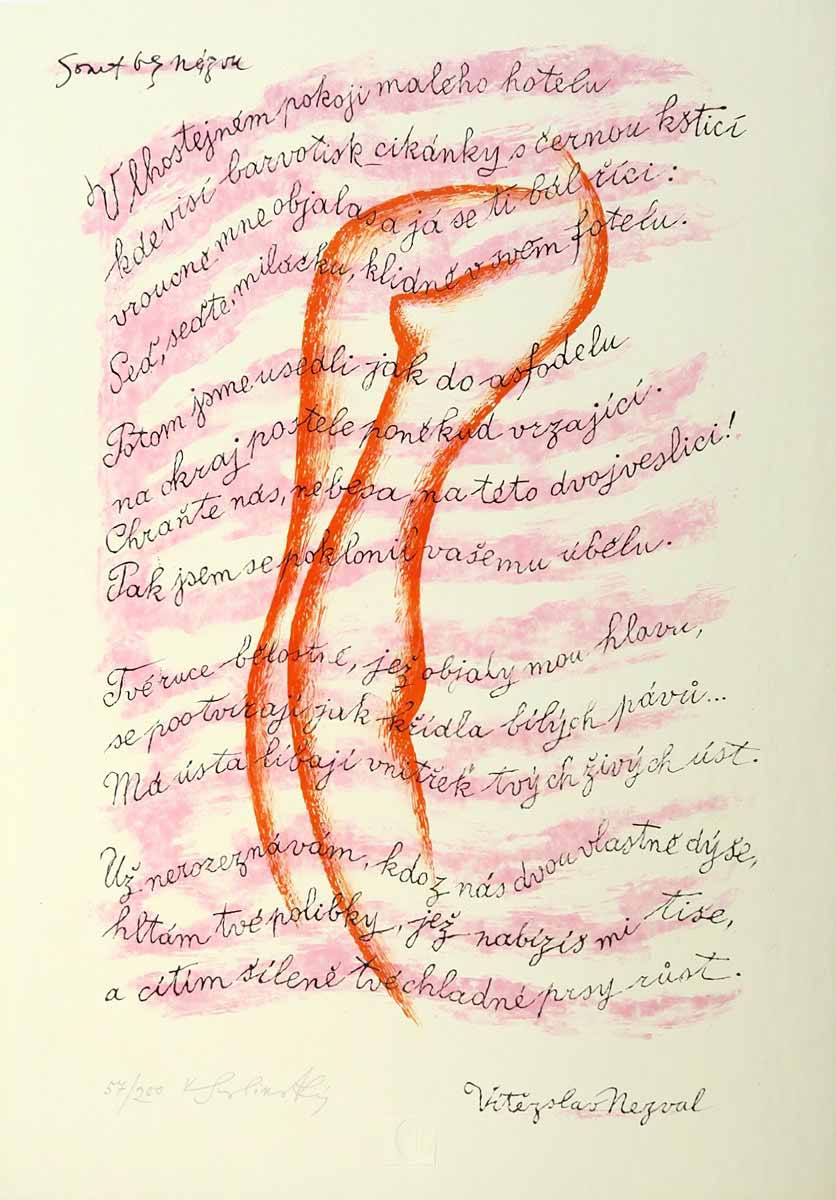 Sonet bez názvu
V lhostejném pokoji malého hotelu
kde visí barvotisk cikánky s černou kšticí
vroucně mne objala s a já se ti bál říci:
Seď, seďte, miláčku, klidně v svém fotelu.
Potom jsme usedli jak do asfodelu
na okraj postele poněkud vrzající.
Chraňte nás, nebesa, na této dvojveslici!
Pak jsem se poklonil vašemu úbělu.
Tvé ruce bělostné, jež objaly mou hlavu,
se pootvírají jak křídla bílých pávů...
Má ústa líbají vnitřek tvých živých úst.
Už nerozeznávám, kdo z nás dvou vlastně dýše,
hltám tvé polibky, jež nabízíš mi tiše,
a cítím šíleně tvé chladné prsy růst.
57/200
Vítězslav Nezval